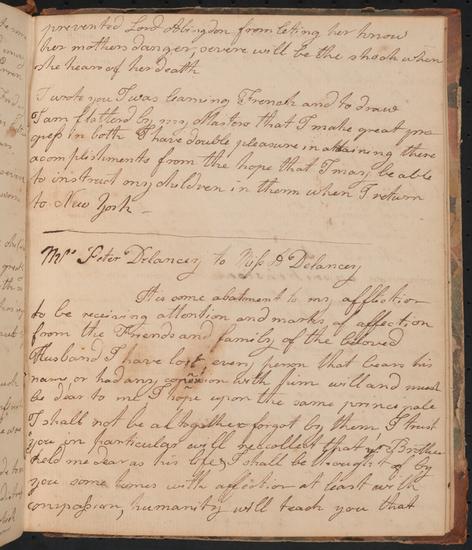 prevented Lord Abingdon from leting her know
her mothers danger, severe will be the shock when
she hears of her death
I wrote you I was learning French and to draw
I am flatterd by my Masters that I make great pro
gress in both I have double pleasure in attaining these
acomplishments from the hope that I may be able
to instruct my children in them when I return
to New York —
Mrs. Peter Delancey to Miss Delancey
Tis some abatment to my afflection
to be receiving attention and marks of affection
from the Friends and family of the beloved
Husband I have lost every person that bears his
name or had any conexion with him will and must
be dear to me I hope upon the same principale
I shall not be al together forgot by them I trust
you in particular will recollect that yr. Brother
held me dear as his life, I shall be thought of by
you some times with affection at least with
compassion, humanity will teach you that